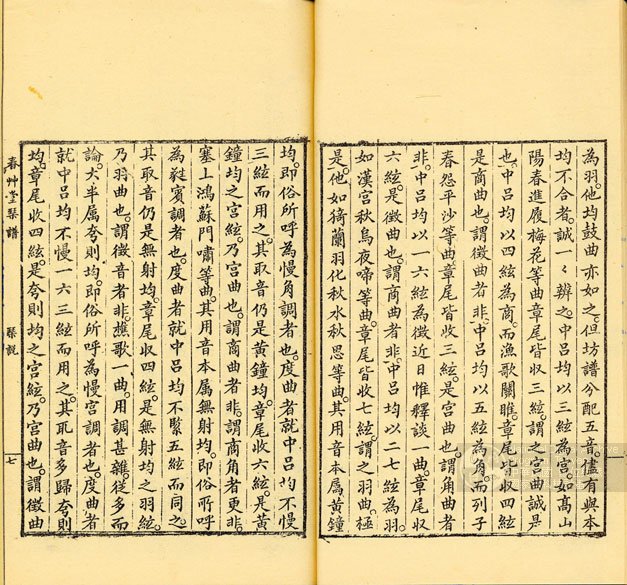 為羽。他均鼓曲亦如之。但坊譜分配五音。儘有與本
均不合者。誠一〻辨之。中呂均以三絃為宮。如高山
陽春進履梅花等曲。章尾皆收三絃。謂之宮曲誠是
也。中呂均以四絃為商。而漁歌關雎。章尾皆收四絃
是商曲也。謂徵曲者非。中呂均以五絃為角。而列子
春怨平沙等曲。章尾皆收三絃。是宮曲也。謂角曲者
非。中呂均以一六絃為徵。近日惟釋談一曲。章尾收
六絃。是徵曲也。謂商曲者非。中呂均以二七絃為羽。
如漢宮秋烏夜啼等曲。章尾皆收七絃。謂之羽曲。極
是。他如猗蘭羽化秋水秋思等曲。其用音本屬黃鐘
均。即俗所呼為慢角調者也。度曲者就中呂均不慢
三絃而用之。其取音仍是黃鐘均。章尾收六絃。是黃
鐘均之宮絃。乃宮曲也。謂商曲者非。謂商角者更非。
塞上鴻蘇門嘯等曲。其用音本屬無射均。即俗所呼
為蕤賓調者也。度曲者就中呂均不緊五絃而同之。
其取音仍是無射均。章尾收四絃。是無射均之羽絃。
乃羽曲也。謂徵音者非。樵歌一曲。用調甚雜。從多而
論。大半屬夸則均。即俗所呼為慢宮調者也。度曲者
就中呂均不慢一六三絃而用之。其取音多歸夸則
均。章尾收四絃。是夸則均之宮絃。乃宮曲也。謂徵曲
春艸堂琴譜
琴說
七